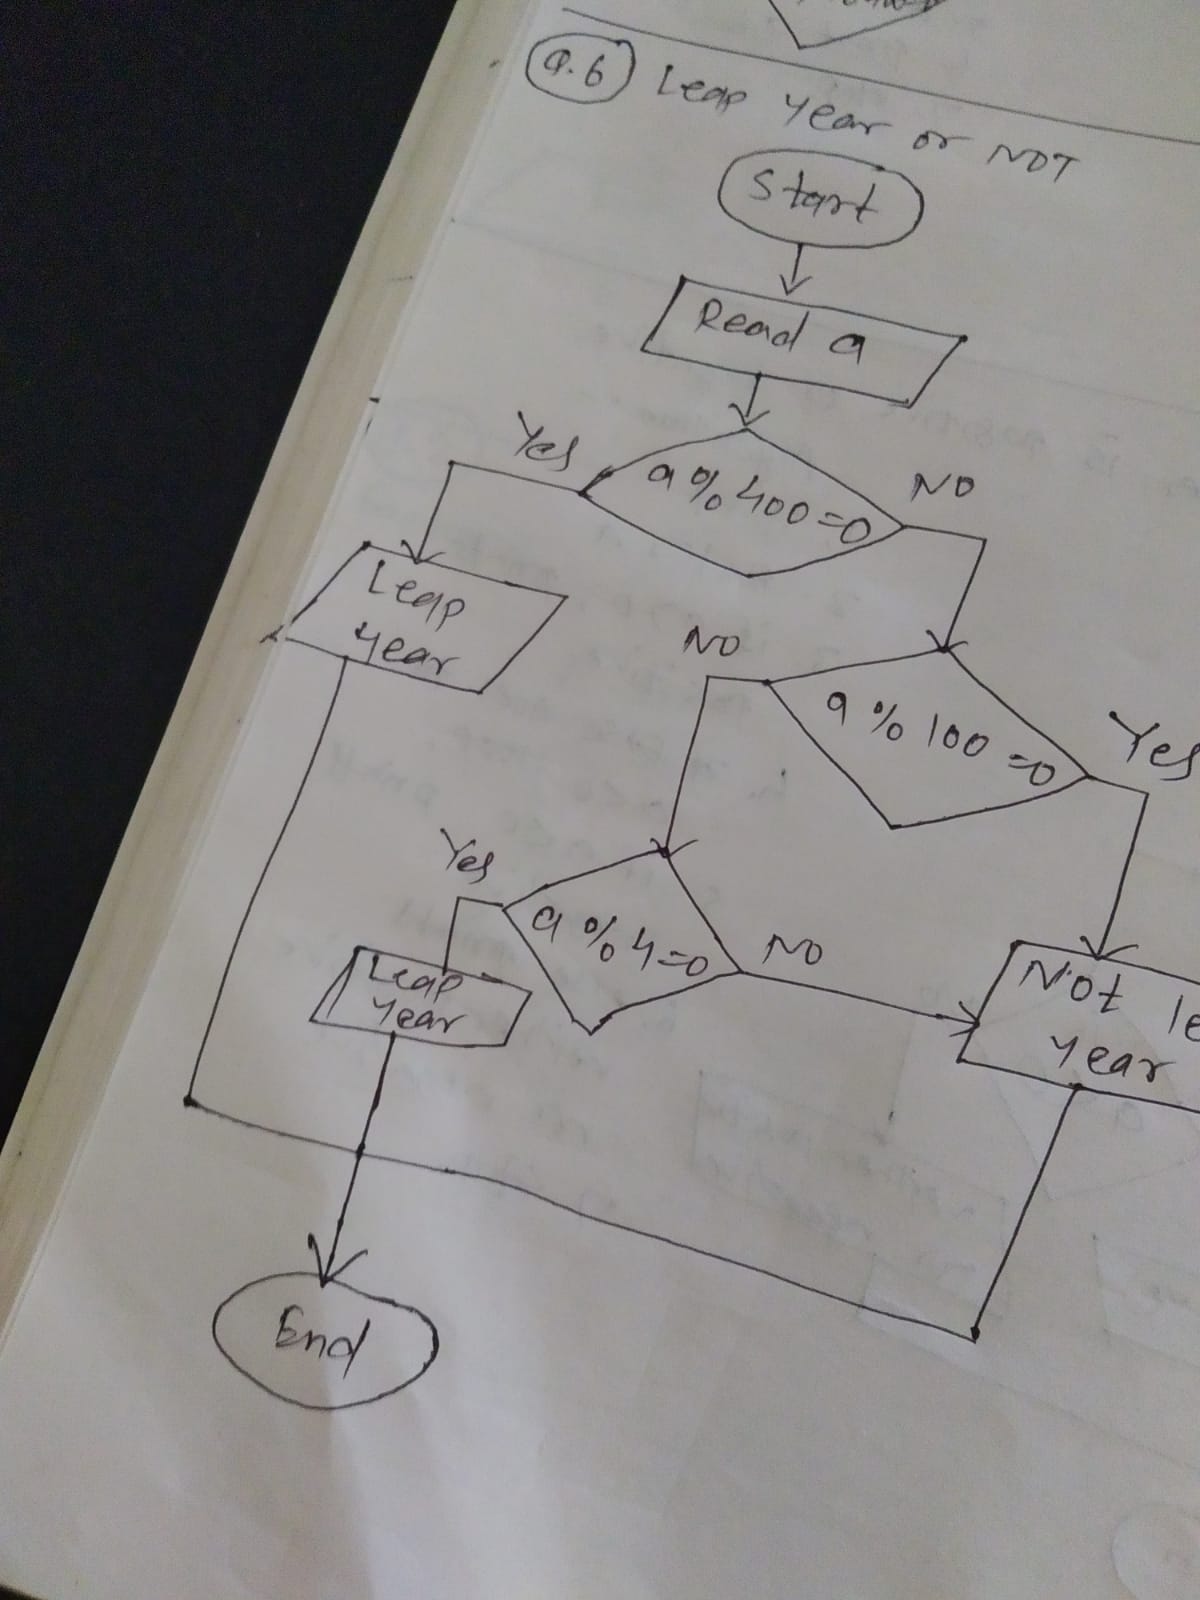 Q.6 Leap year or NOT
Start
Read a
Yes
a % 400 = 0
NO
Leap
year
NO
a % 100 = 0
Yes
Yes
a % 4 = 0
NO
Leap
year
Not le
year
End